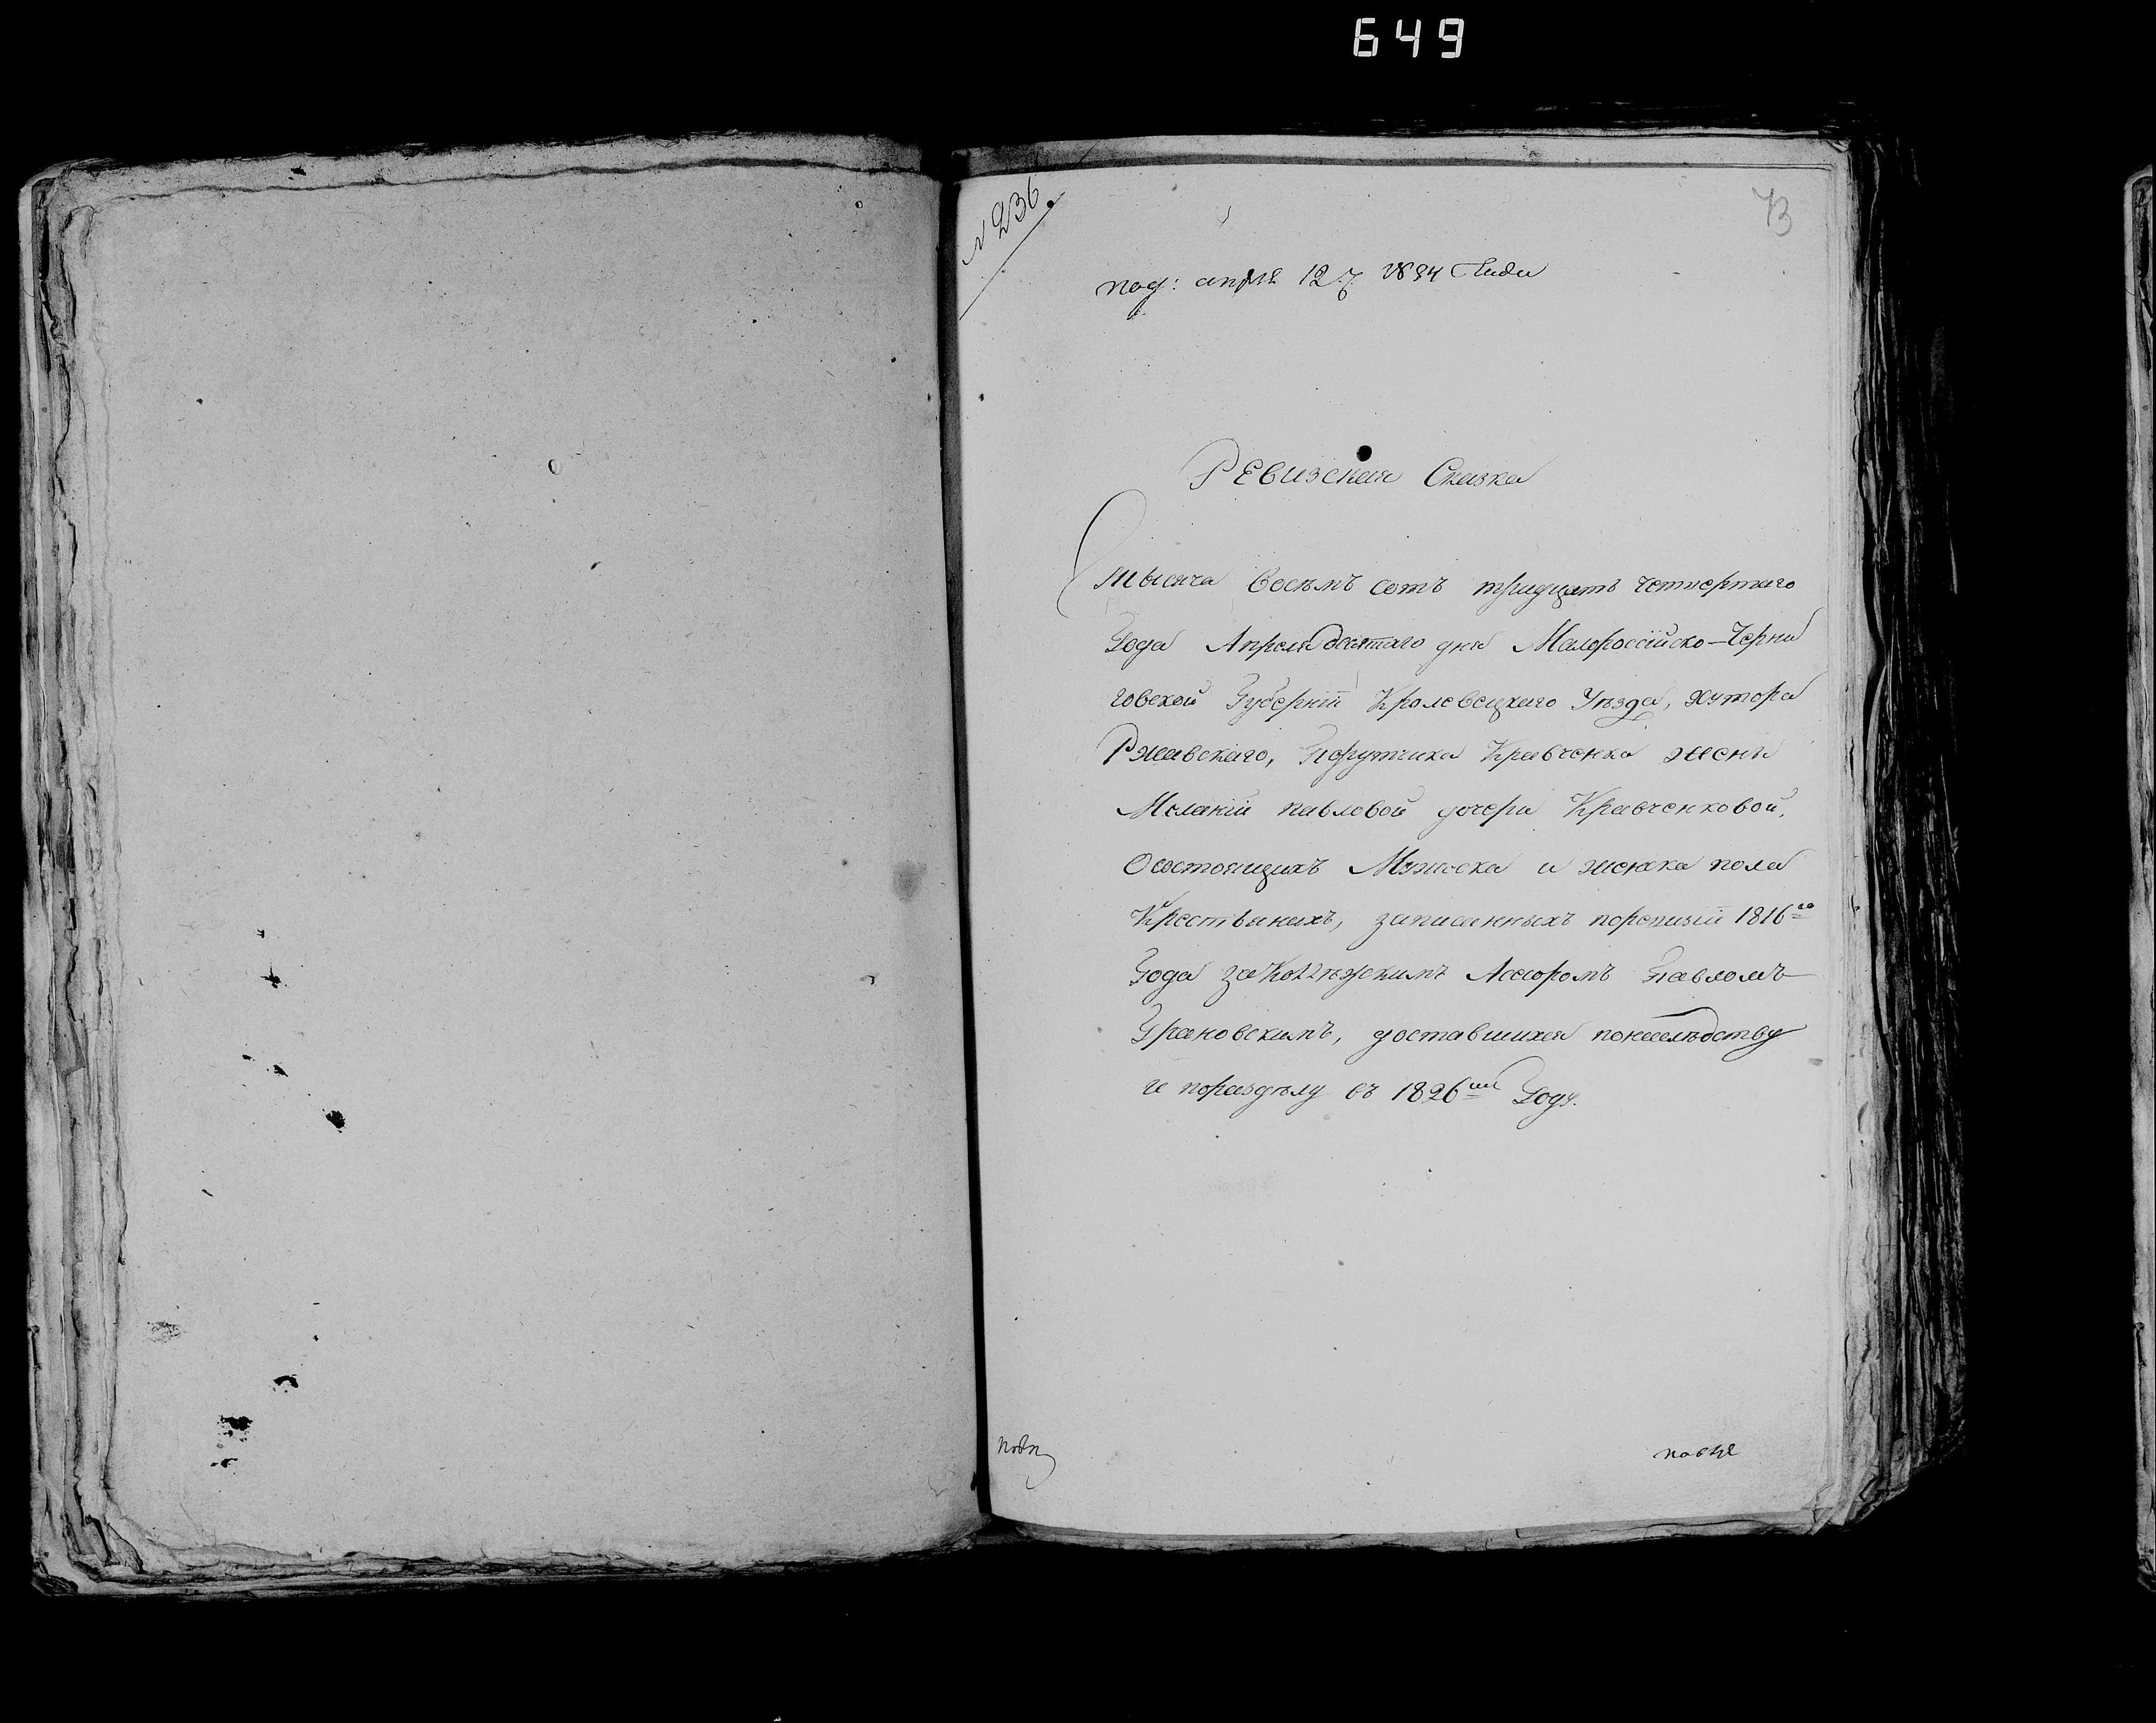 649
N 236.
73
под: апреля 12 д. 1834 Года
Ревизская Сказка
тысяча восемъ сотъ тридцать четвертаго
Года Апреля десятаго дня Малороссійско-Черни
говской Губерніи Кролевецкаго Уезда, хутора
Ржавскаго, Порутчика Кравченка жены
Меланіи павловой дочери Кравченковой,
О состоящихъ Мужеска и женска пола
Крестьянахъ, записанныхъ поревизіи 1816го
Года за Коллѣжскимъ Асесоромъ Павломъ
Грановскимъ, доставшихся понаслѣдству
и пораздѣлу въ 1826мъ Году.